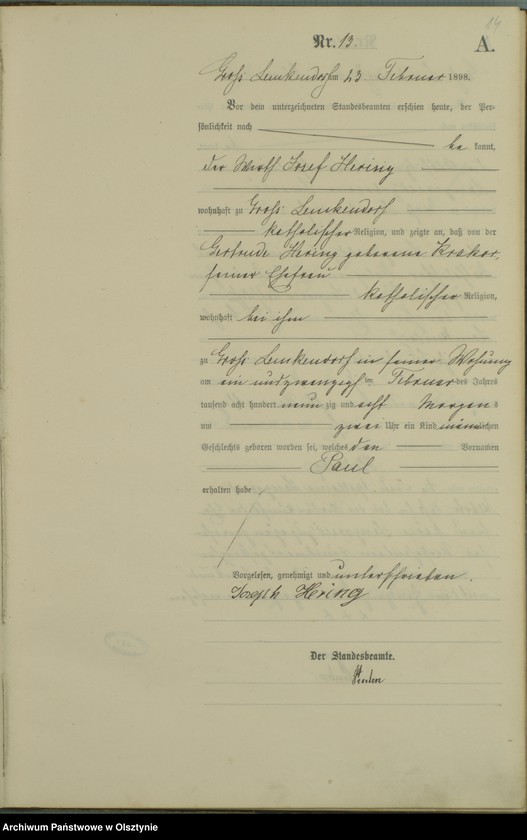 14
Nr. 13.
A.
Groß Lemkendorf am 23 Februar 1898.
Vor dem unterzeichneten Standesbeamten erschien heute, der Per-
sönlichkeit nach
be kannt,
der Wirth Josef Hering
wohnhaft zu Groß Lemkendorf
katholischer Religion, und zeigte an, daß von der
Gertrude Hering geborene Krakor,
seiner Ehefrau
katholischer Religion,
wohnhaft bei ihm
zu Groß Lemkendorf in seiner Wohnung
am ein und zwanzigsten Februar des Jahres
tausend acht hundert neun zig und acht Morgens
um zwei Uhr ein Kind männlichen
Geschlechts geboren worden sei, welches den Vornamen
Paul
erhalten habe
Vorgelesen, genehmigt und unterschrieben.
Joseph Hering
Der Standesbeamte.
Archiwum Państwowe w Olsztynie